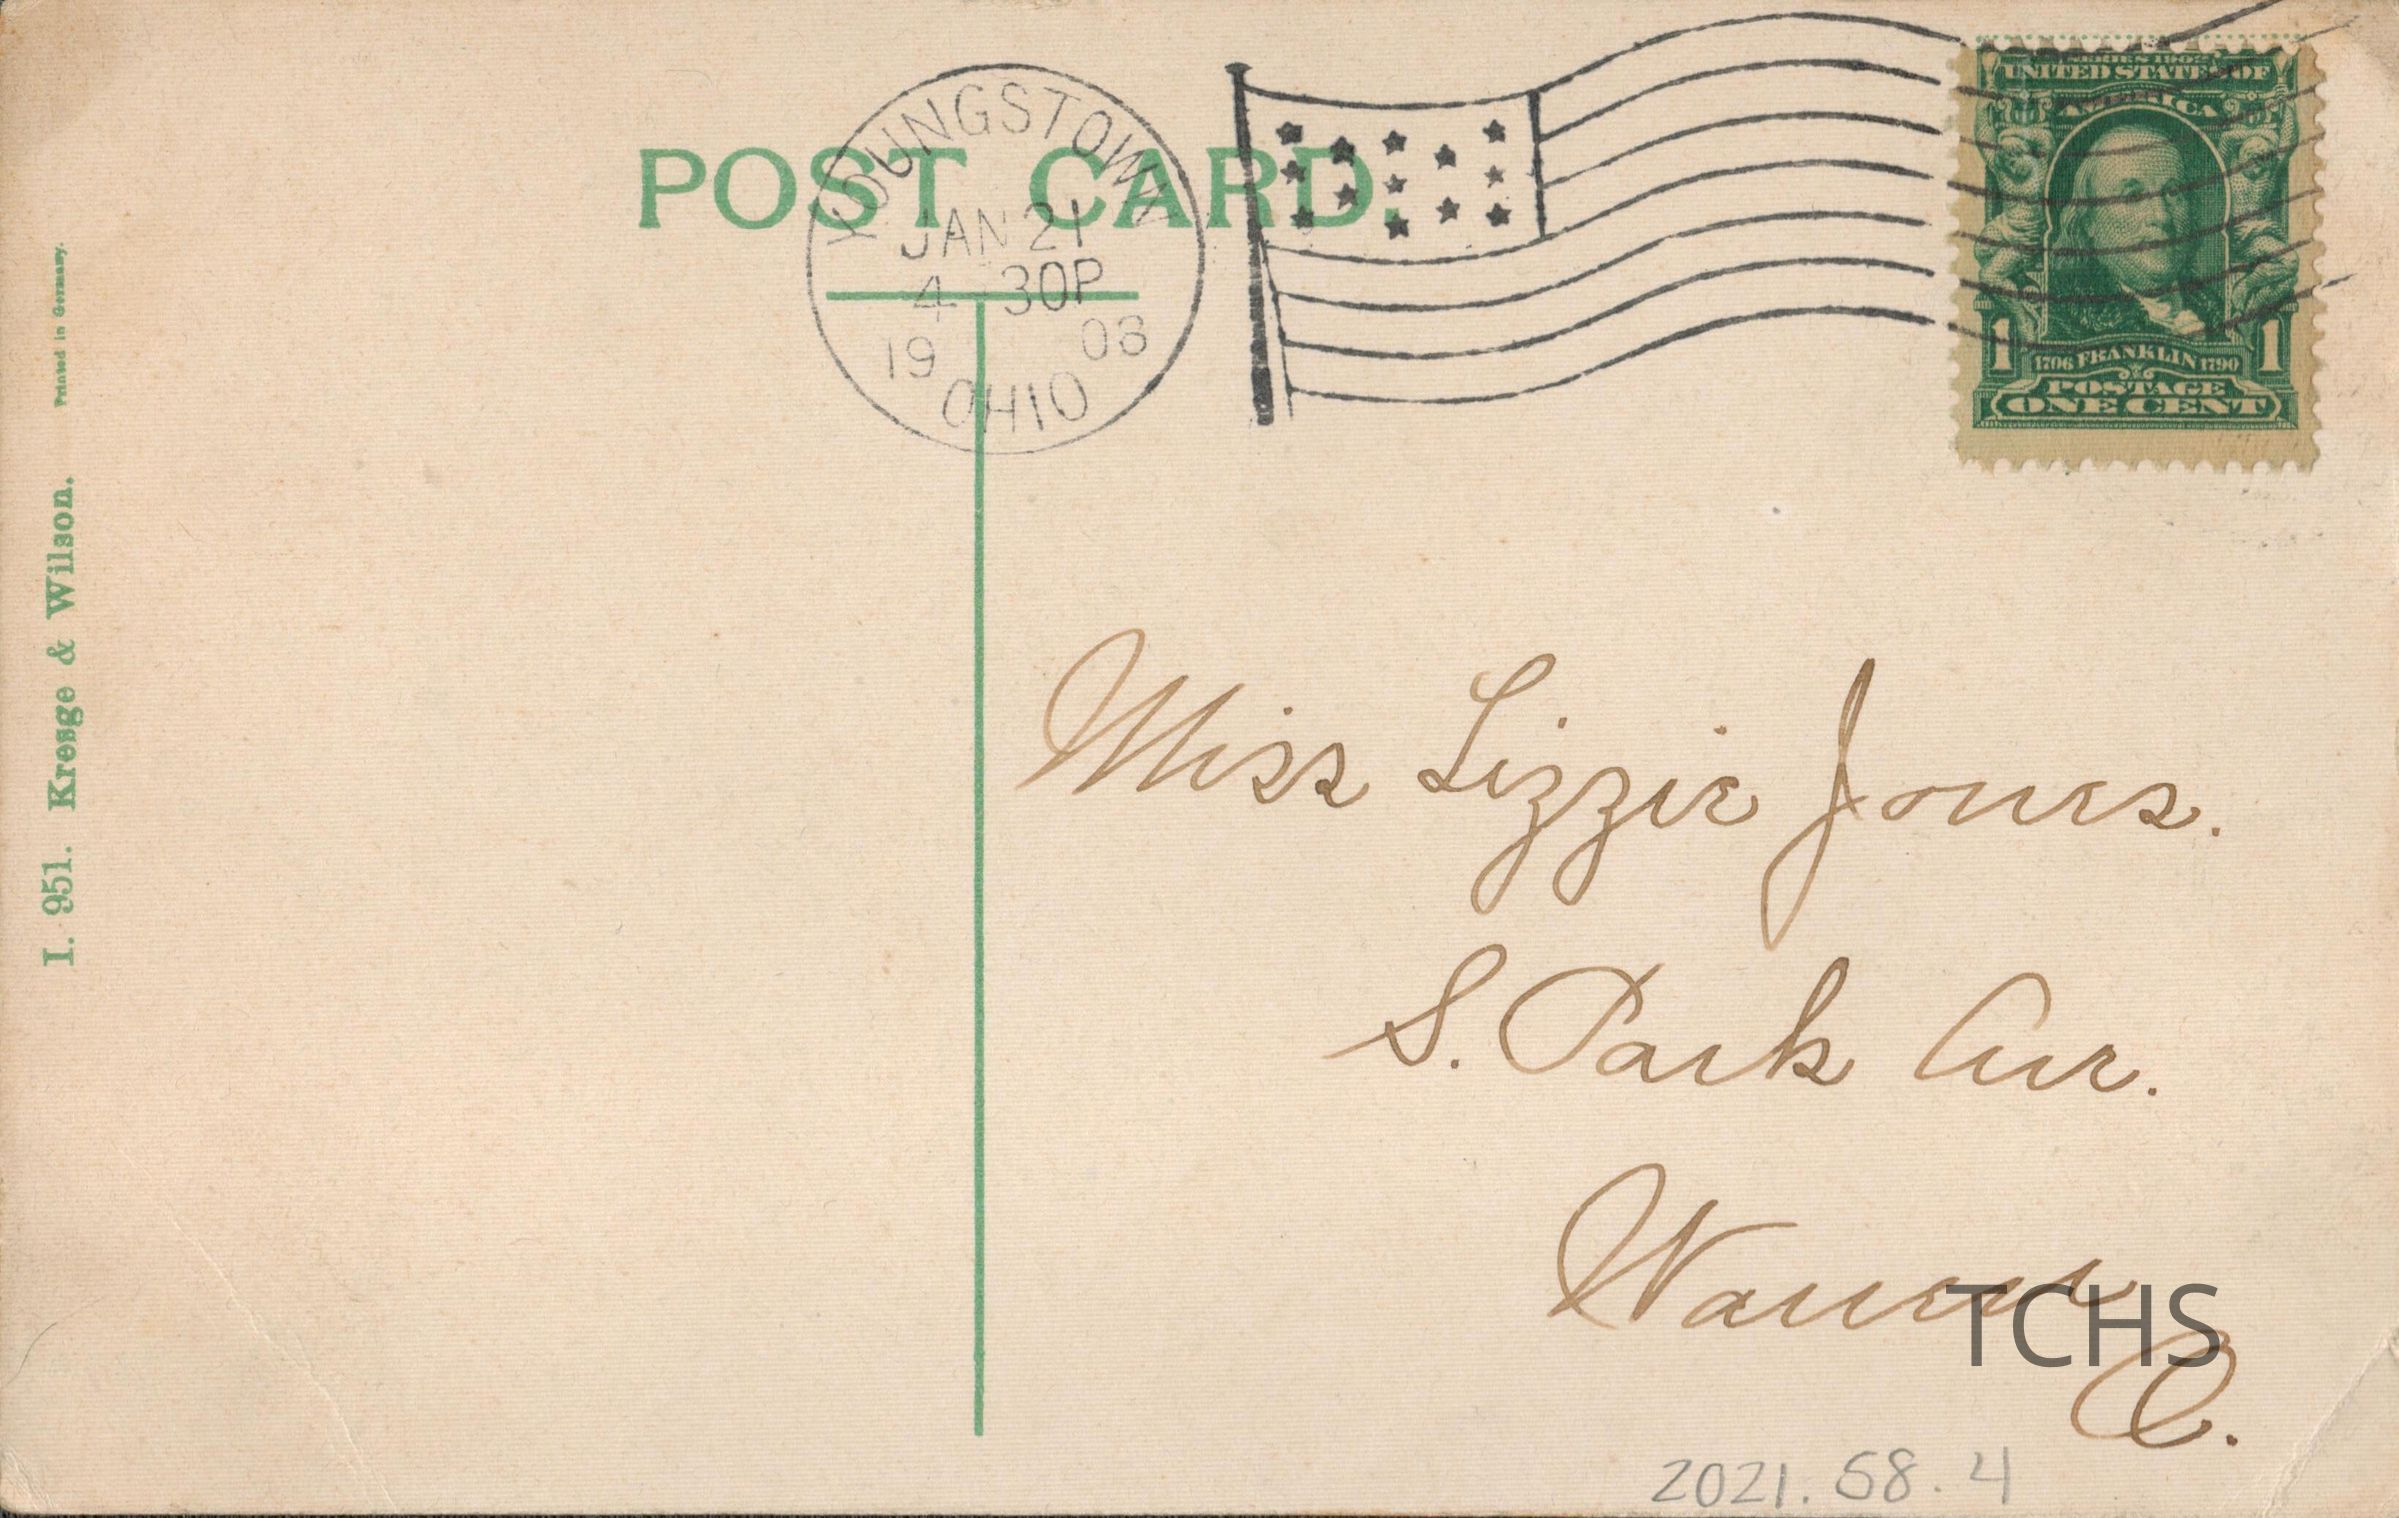 POST CARD.
YOUNGSTOWN
JAN 21
4 30P
19 08
OHIO
SERIES 1902
UNITED STATES OF
AMERICA
1 1
1706 FRANKLIN 1790
POSTAGE
ONE CENT
I. 951. Kresge & Wilson. Printed in Germany.
Miss Lizzie Jones.
S. Park Ave.
Warren
O.
TCHS
2021.58.4